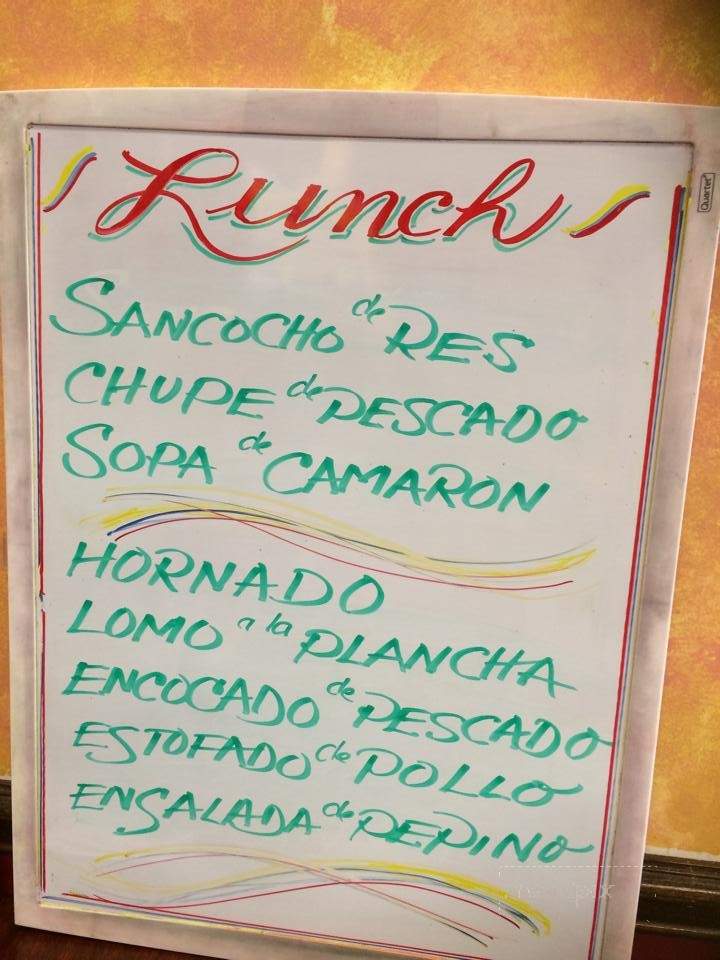 Lunch
Quartet
SANCOCHO de RES
CHUPE de PESCADO
SOPA de CAMARON
HORNADO
LOMO a la PLANCHA
ENCOCADO de PESCADO
ESTOFADO de POLLO
ENSALADA de PEPINO